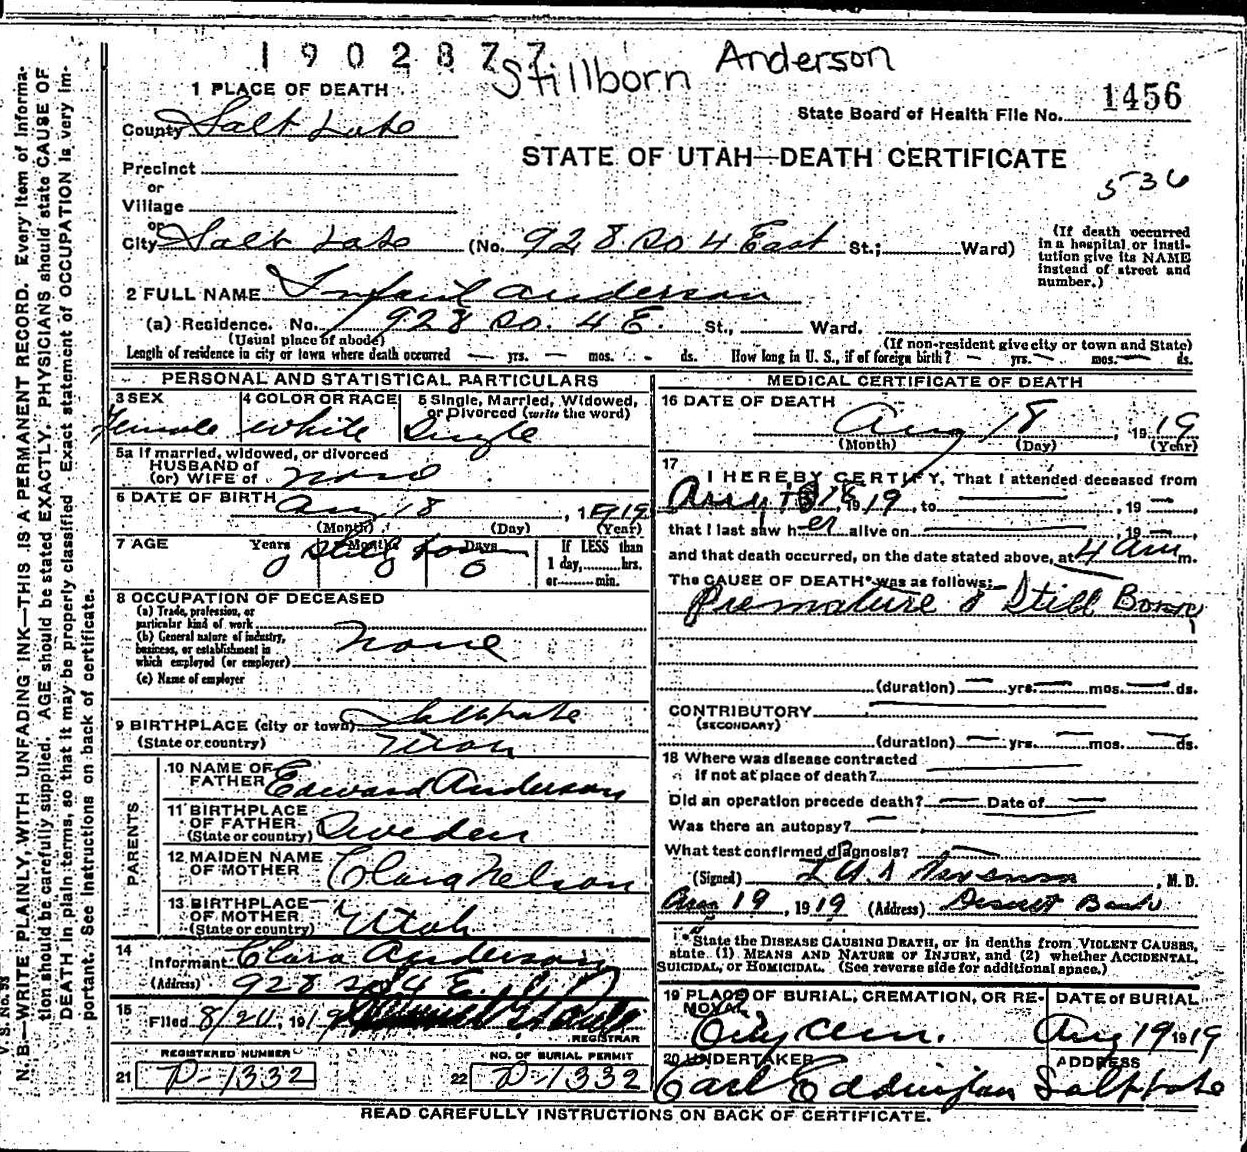 1902877
Stillborn Anderson
1 PLACE OF DEATH
State Board of Health File No. 1456
County Salt Lake
STATE OF UTAH—DEATH CERTIFICATE
Precinct
536
or
Village
or
City Salt Lake (No. 928 So 4 East St.; Ward)
(If death occurred in a hospital or institution give its NAME instead of street and number.)
2 FULL NAME Infant Anderson
(a) Residence. No. 928 So. 4 E. St., Ward.
(Usual place of abode) (If non-resident give city or town and State)
Length of residence in city or town where death occurred — yrs. — mos. - ds. How long in U. S., if of foreign birth? — yrs. — mos. — ds.
PERSONAL AND STATISTICAL PARTICULARS
3 SEX 4 COLOR OR RACE 5 Single, Married, Widowed, or Divorced (write the word)
Female White Single
5a If married, widowed, or divorced
HUSBAND of
(or) WIFE of none
6 DATE OF BIRTH Aug 18, 1919
(Month) (Day) (Year)
7 AGE Years Months Days If LESS than
1 day, hrs.
or min.
0 0
8 OCCUPATION OF DECEASED
(a) Trade, profession, or
particular kind of work
(b) General nature of industry,
business, or establishment in
which employed (or employer)
none
(c) Name of employer
9 BIRTHPLACE (city or town) Salt Lake
(State or country) Utah
PARENTS
10 NAME OF FATHER Edward Anderson
11 BIRTHPLACE OF FATHER (State or country) Sweden
12 MAIDEN NAME OF MOTHER Clara Nelson
13 BIRTHPLACE OF MOTHER (State or country) Utah
14
Informant Clara Anderson
(Address) 928 So 4 E.
15
Filed 8/20, 1919
REGISTRAR
REGISTERED NUMBER NO. OF BURIAL PERMIT
21 P-1332 22 P-1332
MEDICAL CERTIFICATE OF DEATH
16 DATE OF DEATH
Aug 18, 1919
(Month) (Day) (Year)
17
I HEREBY CERTIFY, That I attended deceased from
Aug 18, 1919, to —, 19—,
that I last saw her alive on —, 19—
and that death occurred, on the date stated above, at 4 am m.
The CAUSE OF DEATH* was as follows:
Premature & Still Born
(duration) — yrs. — mos. — ds.
CONTRIBUTORY
(SECONDARY)
(duration) — yrs. — mos. — ds.
18 Where was disease contracted
if not at place of death?
Did an operation precede death? — Date of —
Was there an autopsy? —
What test confirmed diagnosis? —
(Signed) , M. D.
Aug 19, 1919 (Address) Deseret Bank
*State the DISEASE CAUSING DEATH, or in deaths from VIOLENT CAUSES,
state (1) MEANS AND NATURE OF INJURY, and (2) whether ACCIDENTAL,
SUICIDAL, or HOMICIDAL. (See reverse side for additional space.)
19 PLACE OF BURIAL, CREMATION, OR REMOVAL DATE of BURIAL
City Cem. Aug 19 1919
20 UNDERTAKER ADDRESS
Earl Eddington Salt Lake
READ CAREFULLY INSTRUCTIONS ON BACK OF CERTIFICATE.
V. S. No. 98
N. B—WRITE PLAINLY, WITH UNFADING INK—THIS IS A PERMANENT RECORD. Every Item of Informa-
tion should be carefully supplied. AGE should be stated EXACTLY. PHYSICIANS should state CAUSE OF
DEATH in plain terms, so that it may be properly classified. Exact statement of OCCUPATION is very im-
portant. See instructions on back of certificate.